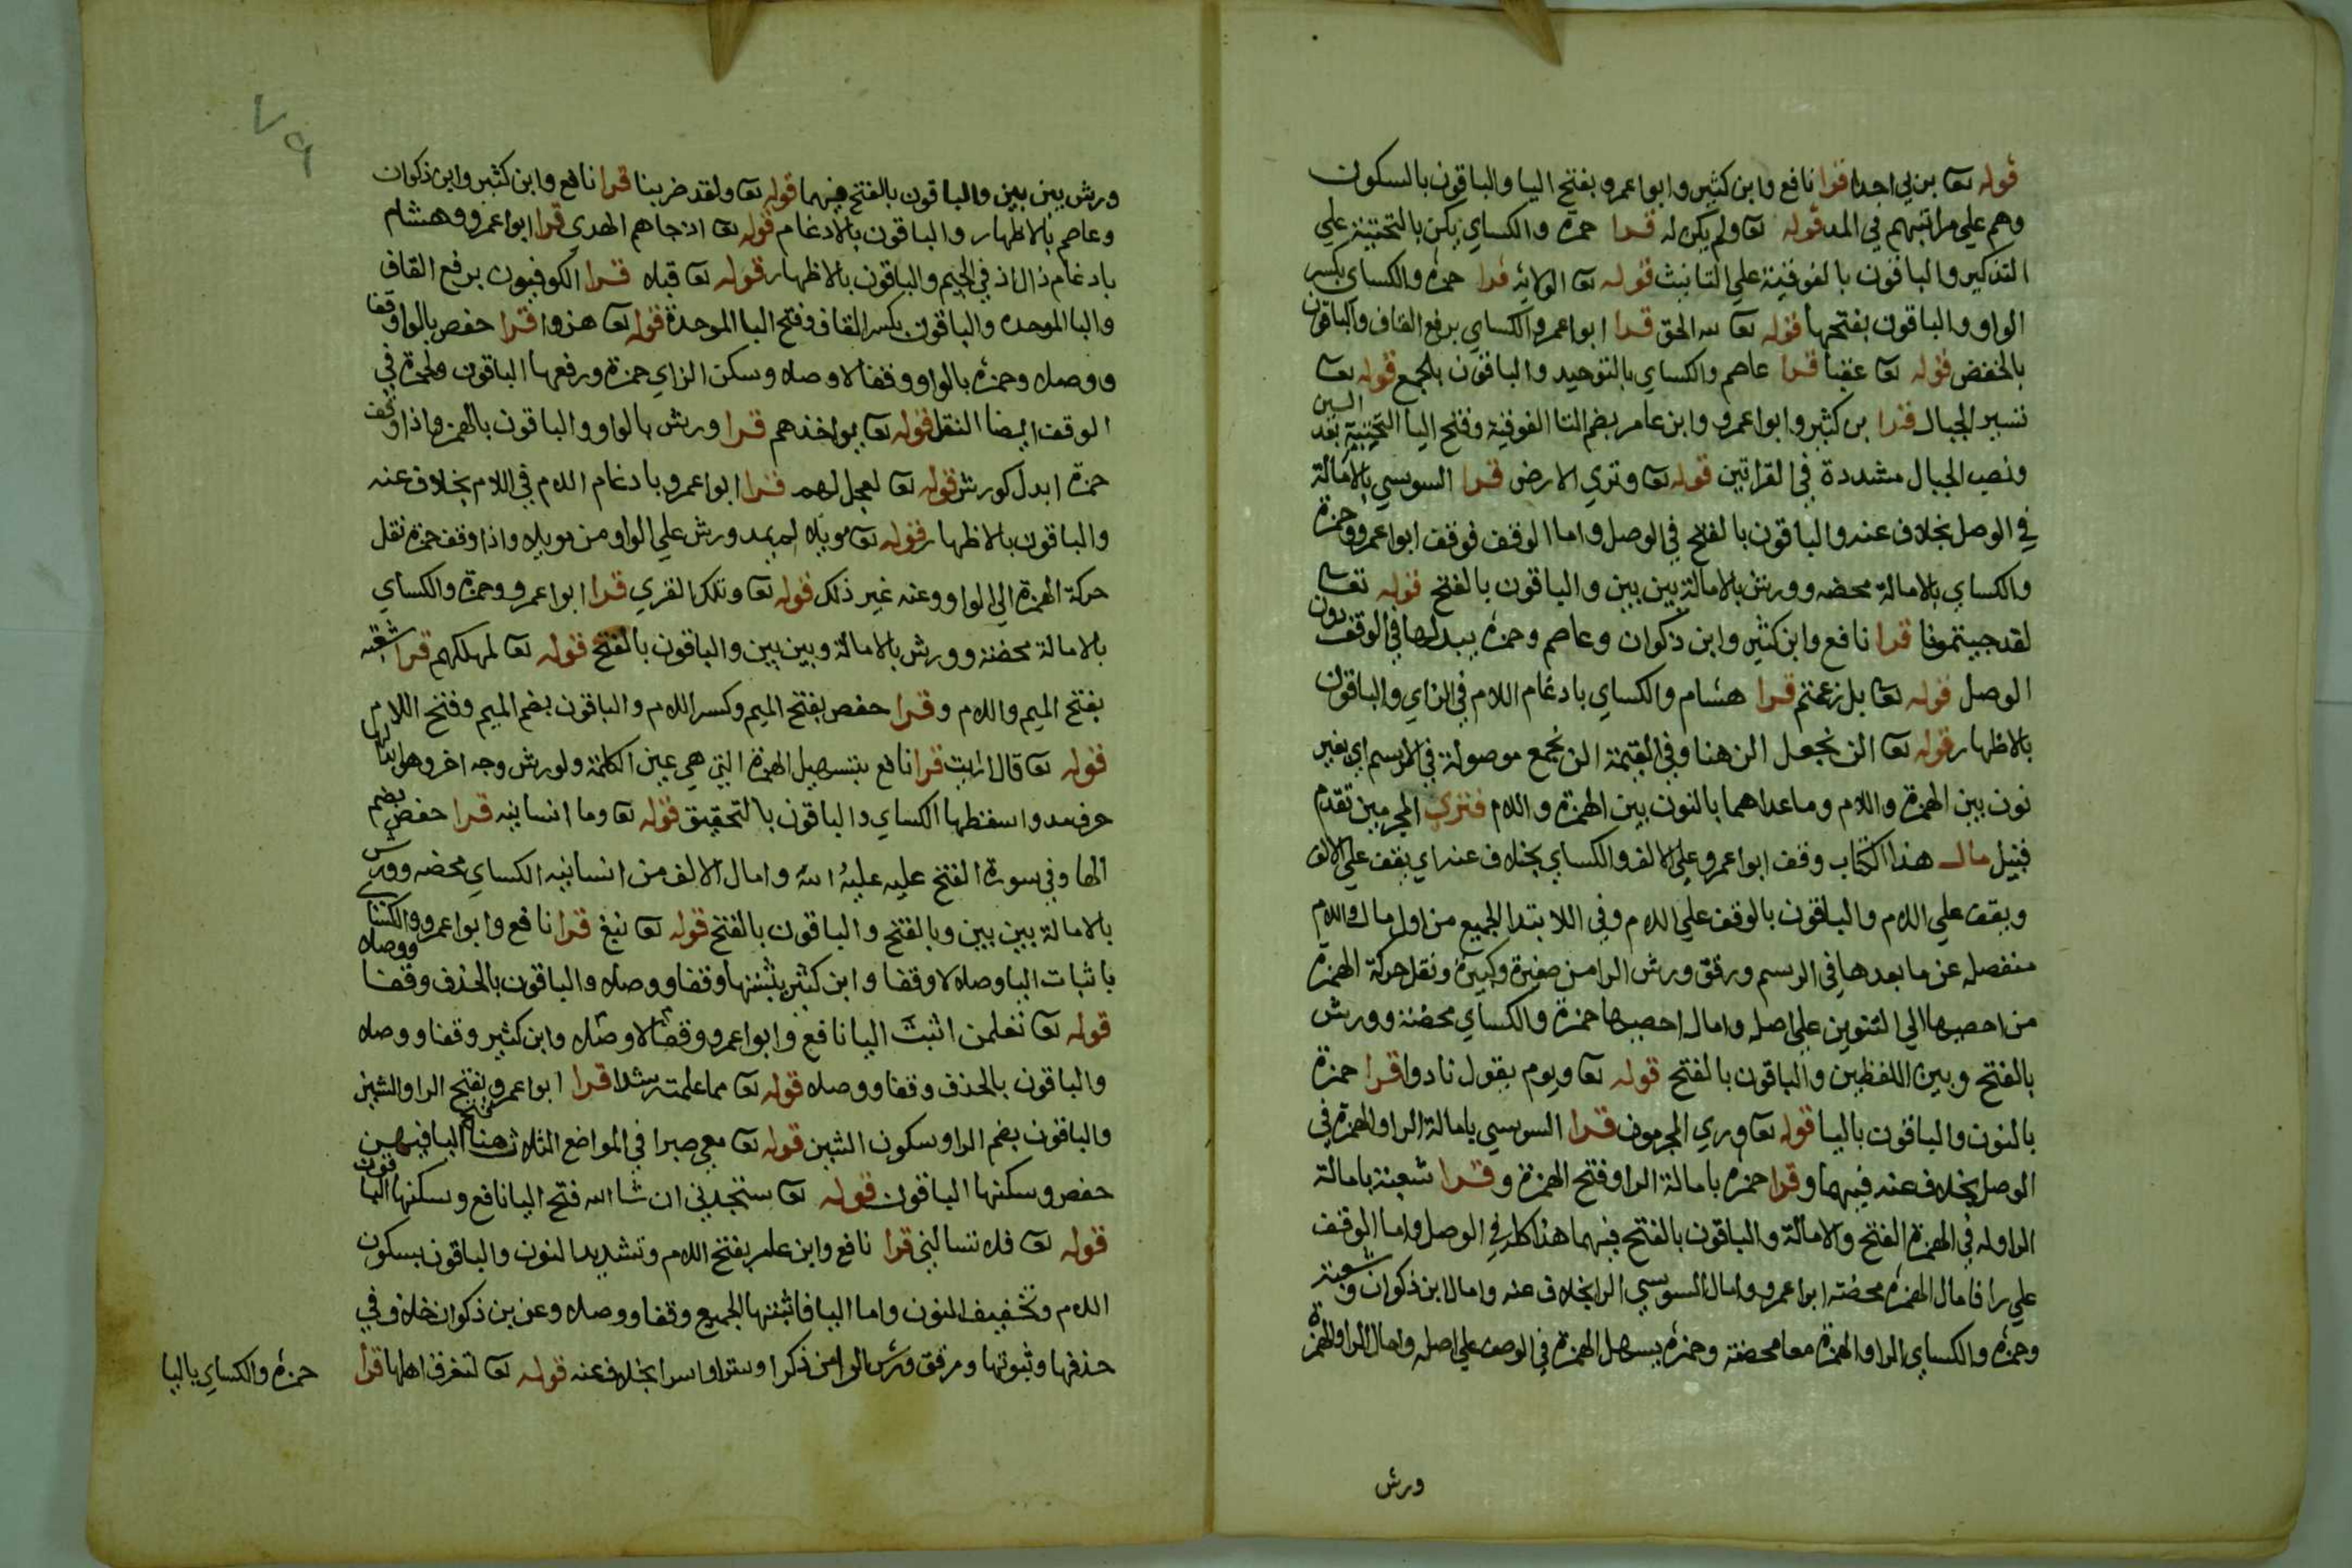 قوله تعا بربي احدا قرا نافع وابن كثير وابوا عمرو بفتح اليا والباقون بالسكون
وهم علي مراتبهم في المد قوله تعا ولم يكن له قرا حمزة والكساي يكن بالتحتية علي
التذكير والباقون بالفوقية علي التانيث قوله تعا الولاية قرا حمزة والكساي بكسر
الواو والباقون بفتحها قوله تعا لله الحق قرا ابوا عمرو والكساي برفع القاف والباقون
بالخفض قوله تعا عقبا قرا عاصم والكساي بالتوحيد والباقون بالجمع قوله تعا
نسير الجبال قرا بن كثير وابوا عمرو وابن عامر بضم التا الفوقية وفتح اليا التحتية بعد السين
ونصب الجبال مشددة في القراتين قوله تعا وتري الارض قرا السوسي بالامالة
في الوصل بخلاف عنه والباقون بالفتح في الوصل واما الوقف فوقف ابوا عمرو وحمزة
والكساي بالامالة محضه وورش بالامالة بين بين والباقون بالفتح قوله تعا
لقد جيتمونا قرا نافع وابن كثير وابن ذكوان وعاصم وحمزة يبدلها في الوقف دون
الوصل قوله تعا بل زعمتم قرا هشام والكساي بادغام اللام في الزاي والباقون
بالاظهار قوله تعا الن نجعل الن هنا وفي القيمة الن نجمع موصولة في الرسم اي بغير
نون بين الهمزة واللام وما عداهما بالنون بين الهمزة واللام فتري المجرمين تقدم
قبيل مال هذا الكتاب وقف ابوا عمرو علي الالف والكساي بخلاف عنه اي يقف علي الالف
ويقف علي اللام والباقون بالوقف علي اللام وفي اللا بتدا الجميع من اول مال واللام
منفصله عن ما بعدها في الرسم ورقق ورش الرا من صغيرة وكبيرة ونقل حركة الهمزة
من احصيها الي التنوين علي اصله وامال احصيها حمزة والكساي محضة وورش
بالفتح وبين اللفظين والباقون بالفتح قوله تعا ويوم يقول نادوا قرا حمزة
بالنون والباقون باليا قوله تعا وراي المجرمون قرا السوسي بامالة الرا والهمزة في
الوصل بخلاف عنه فيهما وقرا حمزة بامالة الرا وفتح الهمزة وقرا شعبة بامالة
الرا وله في الهمزة الفتح والامالة والباقون بالفتح فيهما هذا كله في الوصل واما الوقف
علي را فامال الهمزة محضة ابوا عمرو وامال السوسي الرا بخلاف عنه وامال ابن ذكوان وشعبة
وحمزة والكساي الرا والهمزة معا محضة وحمزة يسهل الهمزة في الوصف علي اصله وامال الرا والهمزة
ورش
ورش بين بين والباقون بالفتح فيهما قوله تعا ولقد ضربنا قرا نافع وابن كثير وابن ذكوان
وعاصم بالاظهار والباقون بالادغام قوله تعا اذ جاهم الهدي قرا ابوا عمرو وهشام
بادغام ذال اذ في الجيم والباقون بالاظهار قوله تعا قبلا قرا الكوفيون برفع القاف
والبا الموحده والباقون بكسر القاف وفتح البا الموحدة قوله تعا هزوا قرا حفص بالواو وقفا
ووصلا وحمزة بالواو وقفا لا وصلا وسكن الزاي حمزة ورفعها الباقون ولحمزة في
الوقف ايضا النقل قوله تعا يواخذهم قرا ورش بالواو والباقون بالهمزة واذا وقف
حمزة ابدل كورش قوله تعا لعجل لهم قرا ابوا عمرو بادغام اللام في اللام بخلاف عنه
والباقون بالاظهار قوله تعا موئلا لم يمد ورش علي الواو من موئلا واذا وقف حمزة نقل
حركة الهمزة الي الواو وعنه غير ذلك قوله تعا وتلك القري قرا ابوا عمرو وحمزة والكساي
بالامالة محضة وورش بالامالة وبين بين والباقون بالفتح قوله تعا لمهلكهم قرا شعبه
بفتح الميم واللام وقرا حفص بفتح الميم وكسر اللام والباقون بضم الميم وفتح اللام
قوله تعا قال ارايت قرا نافع بتسهيل الهمزة التي هي عين الكلمة ولورش وجه اخر وهو ابدالها
حرف مد واسقطها الكساي والباقون بالتحقيق قوله تعا وما انسانيه قرا حفص بضم
الها وفي سورة الفتح عليه عليهُ الله وامال الالف من انسانيه الكساي محضه وورش
بالامالة بين بين وبالفتح والباقون بالفتح قوله تعا نبغ قرا نافع وابوا عمرو والكساي
باثبات اليا وصلا لا وقفا وابن كثير يثبتها وقفا ووصلا والباقون بالحذف وقفا ووصلا
قوله تعا تعلمن اثبت اليا نافع وابوا عمرو وقفا لا وصلا وابن كثير وقفا ووصلا
والباقون بالحذف وقفا ووصلا قوله تعا مما علمت رشدا قرا ابوا عمرو بفتح الرا والشين
والباقون بضم الرا وسكون الشين قوله تعا معي صبرا في المواضع الثلاث هنا فتح اليا فيهن
حفص وسكنها الباقون قوله تعا ستجدني ان شا الله فتح اليا نافع وسكنها الباقون
قوله تعا فلا تسالني قرا نافع وابن عامر بفتح اللام وتشديد النون والباقون بسكون
اللام وتخفيف النون واما اليا فاثبتها الجميع وقفا ووصلا وعن بن ذكوان خلاف في
حذفها وثبوتها ورقق ورش الرا من ذكرا وسترا وامرا بخلاف عنه قوله تعا لتغرق اهلها قرا
حمزة والكساي باليا